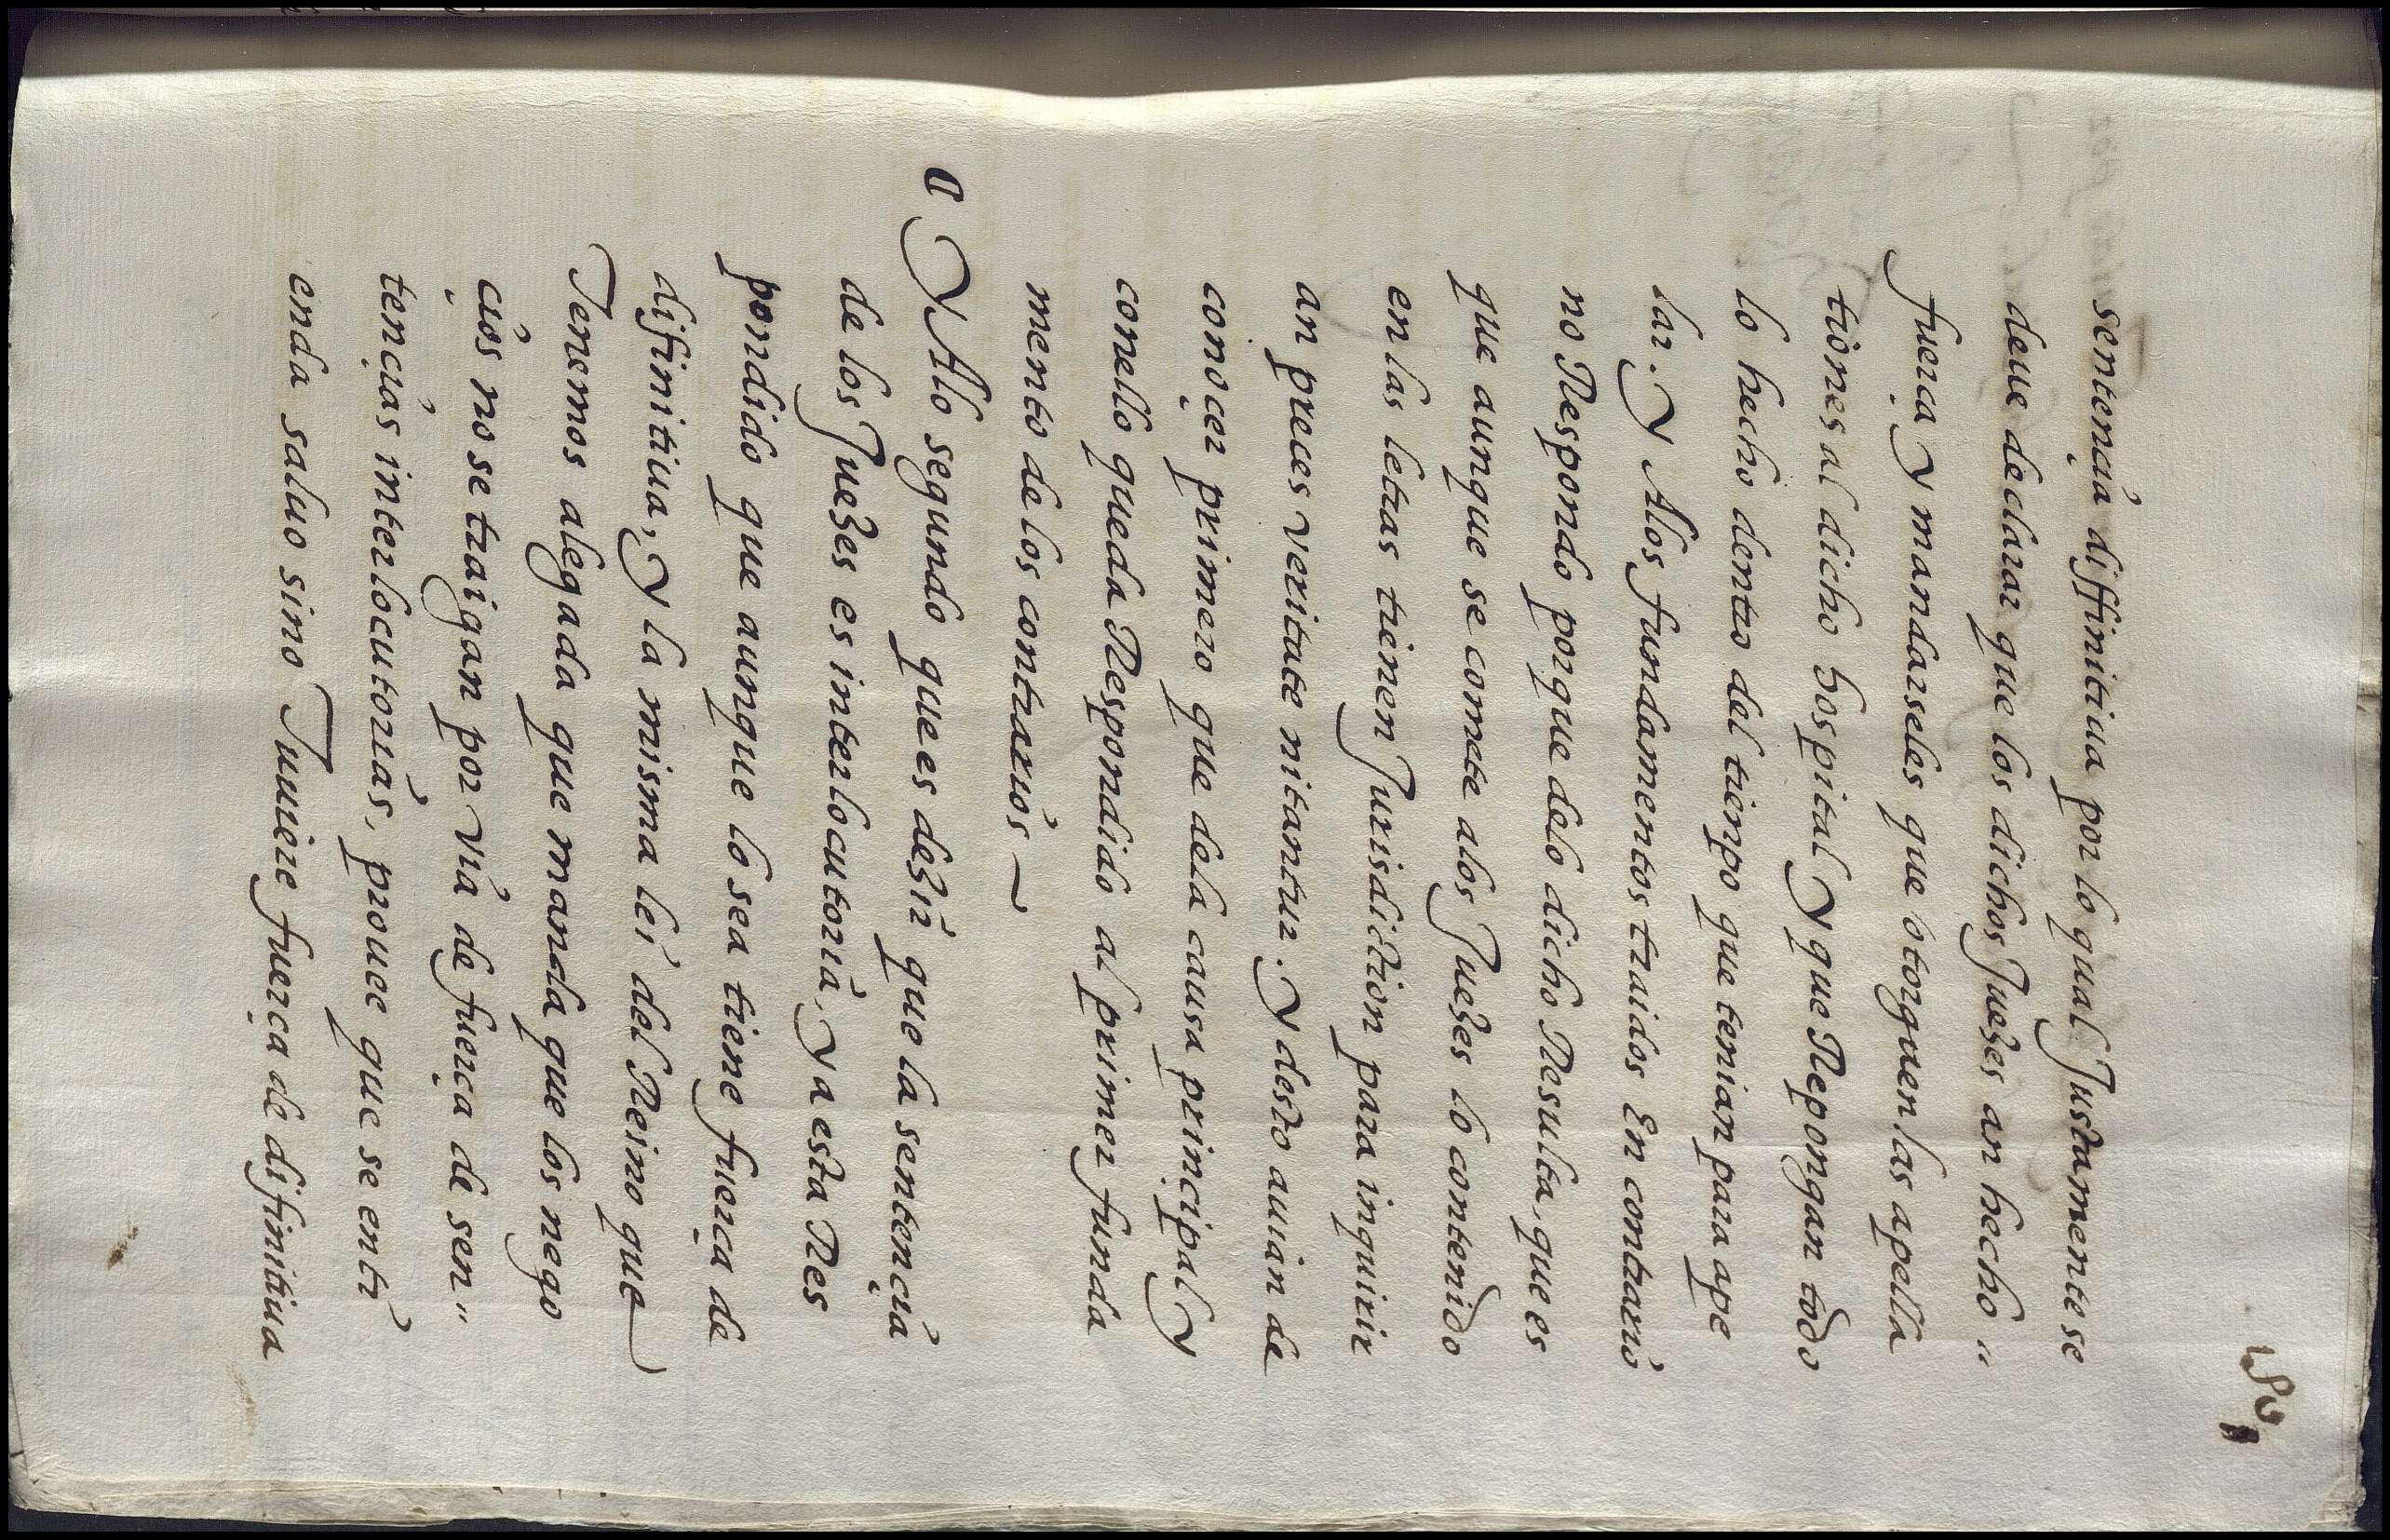 189
sentençia diffinitiua por lo qual Justamente se
deue declarar que los dichos Juezes an hecho "
fuerça y mandarseles que otorguen las apella
tiones al dicho hospital y que Repongan todo
lo hecho dentro del tienpo que tenian para ape
lar. y Alos fundamentos traidos En contrario
no Respondo porque delo dicho Resulta, que es
que aunque se comete alos Juezes lo contenido
en las letras tienen Jurisdiction para inquirir
an preces veritate nitantur. y desto auian de
conoçer primero que dela causa prinçipal y
conello queda Respondido al primer funda
mento de los contrarios —
y Alo segundo que es dezir que la sentençia
de los Juezes es interlocutoria. y a esta Res
pondido que aunque lo sea tiene fuerça de
difinitiua, y la misma lei del Reino que
Tenemos alegada que manda que los nego
çios no se traigan por via de fuerça de sen"
tençias interlocutorias, prouee que se enti
enda saluo sino Tuuiere fuerça de difinitiua